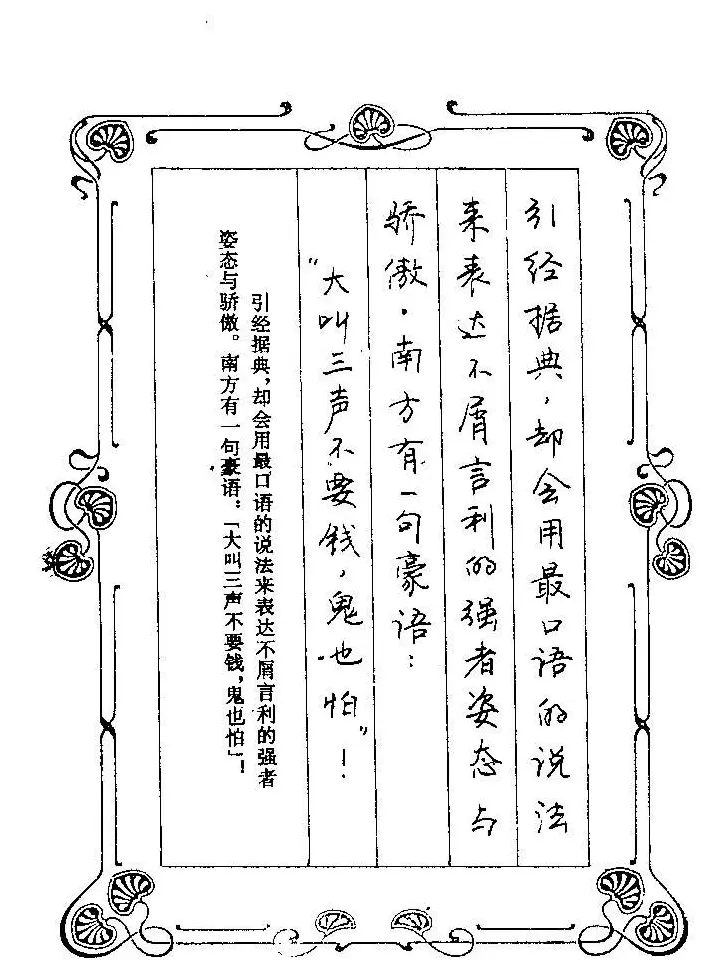 引经据典，却会用最口语的说法
来表达不屑言利的强者姿态与
骄傲．南方有一句豪语：
“大叫三声不要钱，鬼也怕”！
引经据典，却会用最口语的说法来表达不屑言利的强者
姿态与骄傲。南方有一句豪语：「大叫三声不要钱，鬼也怕」！